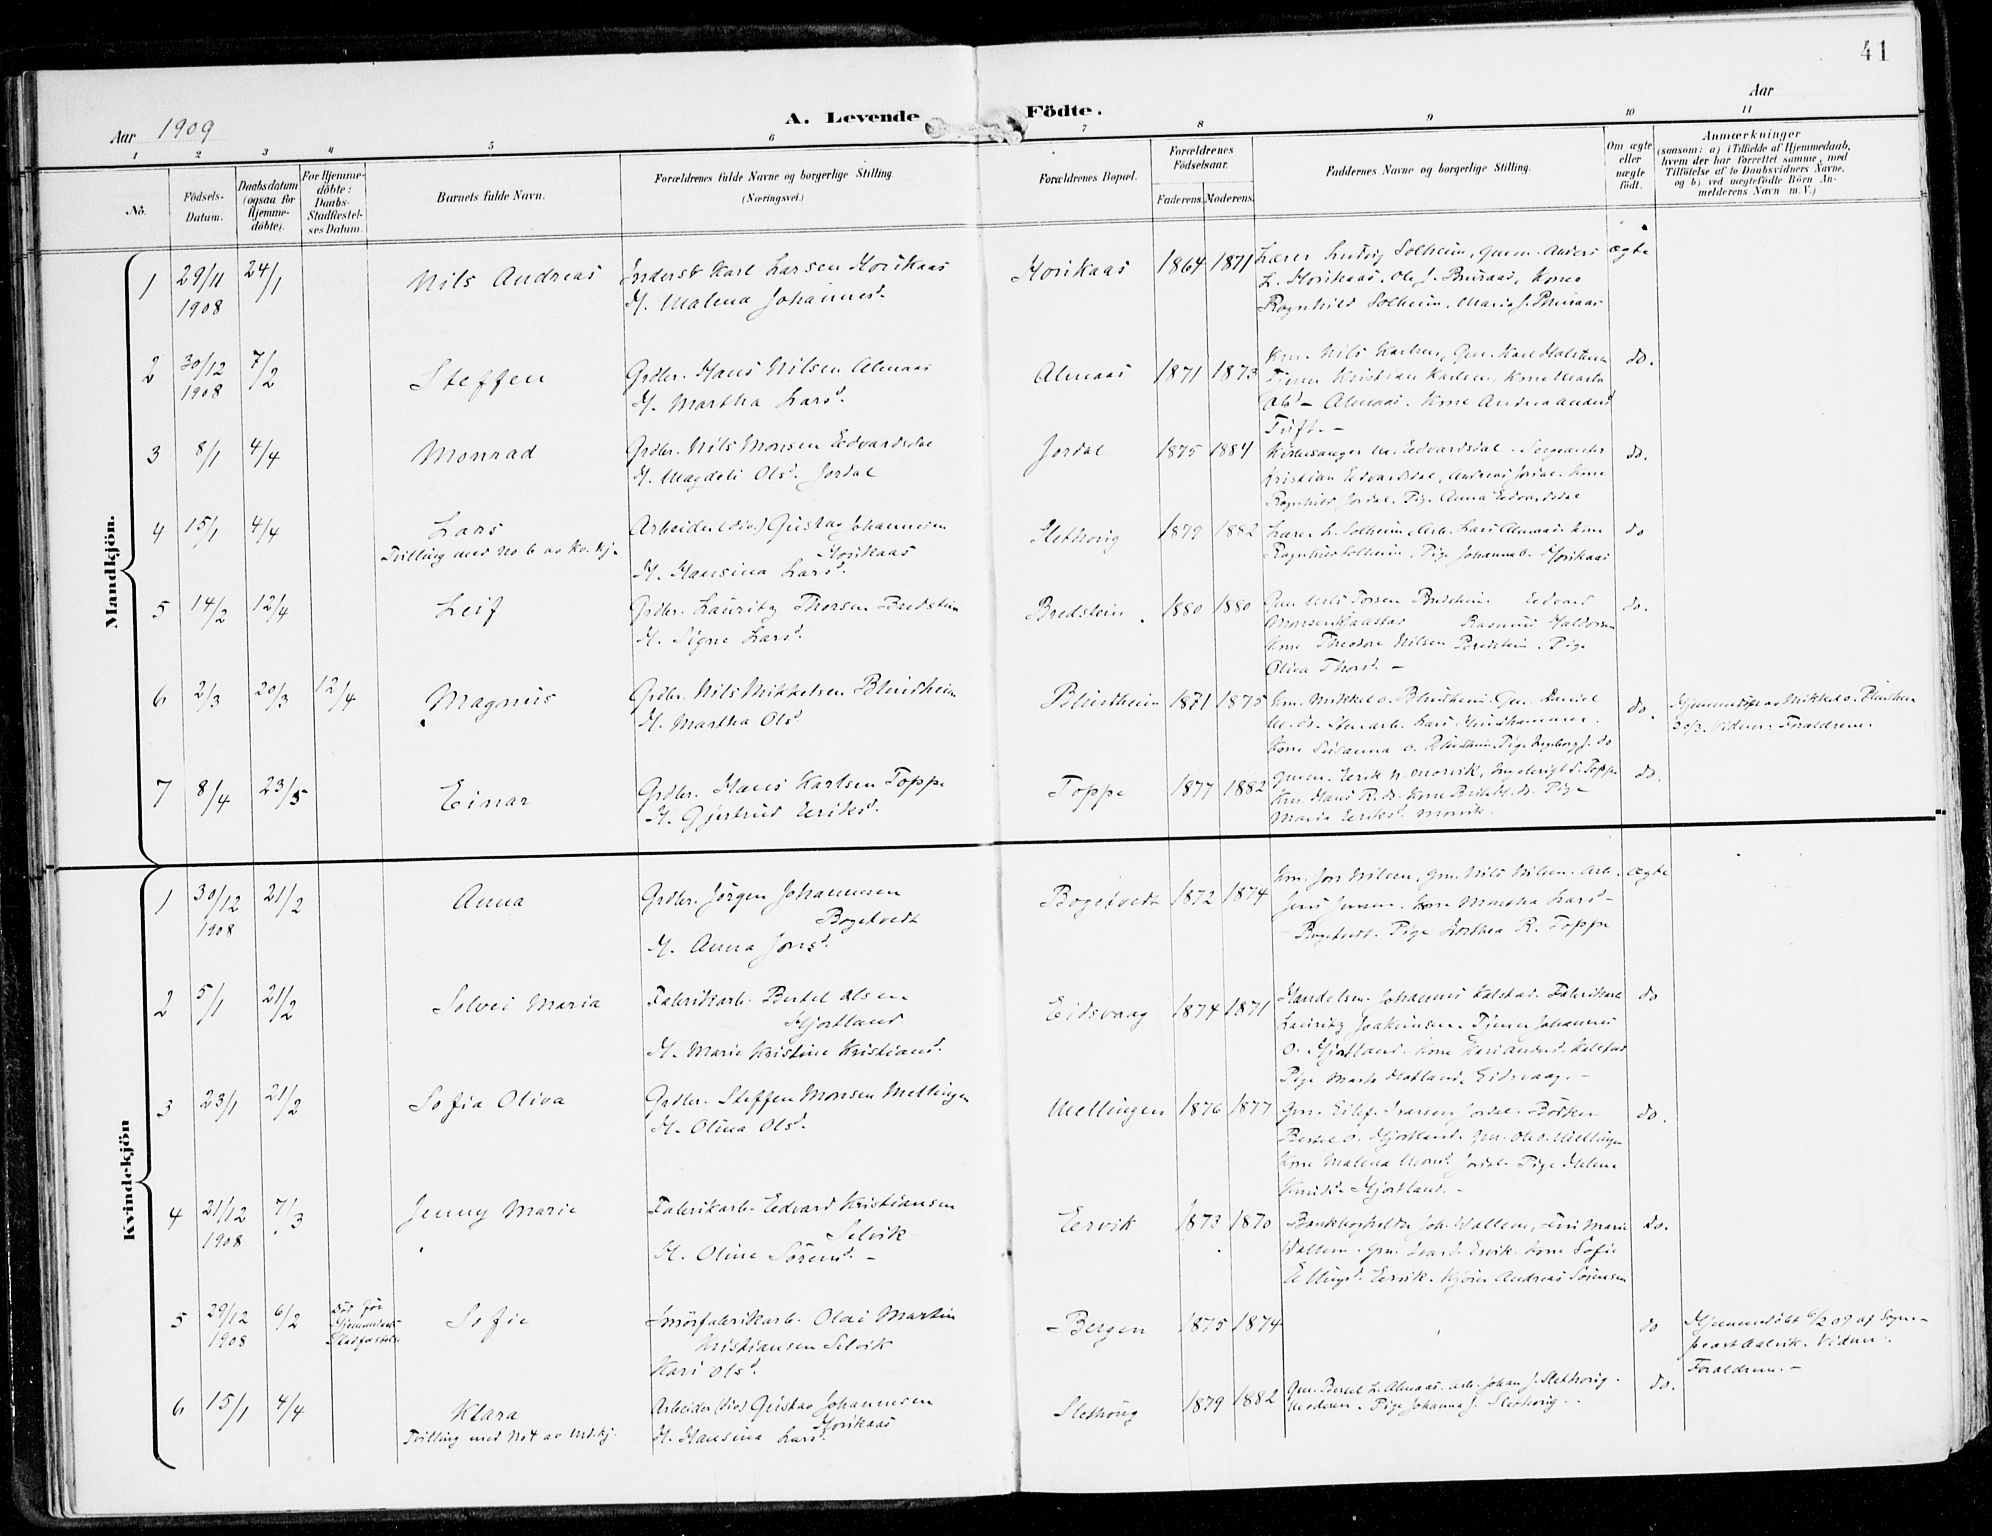 41
Aar 1909
A. Levende Födte.
Aar
1 2 3 4 5 6 7 8 9 10 11
No.
Födsels-Datum.
Daabsdatum (ogsaa for Hjemme-döbte).
For Hjemme-döbte: Daabs-Stadfæstel-ses Datum.
Barnets fulde Navn.
Forældrenes fulde Navne og borgerlige Stilling. (Næringsvei.)
Forældrenes Bopæl.
Forældrenes Födselsaar.
Faderens. Moderens.
Faddernes Navne og borgerlige Stilling.
Om ægte eller uægte födt.
Anmærkninger
(saasom: a) i Tilfælde af Hjemmedaab,
hvem der har forrettet samme, med
Tilföielse af to Daabsvidners Navne,
og b) ved uægtefödte Börn An-
melderens Navn m. V.)
Mandkjön.
1 29/11 1908 24/1 Nils Andreas
Karl Larsen Horikaas
H. Malena Johannesd.
Horikaas 1864 1871
Lærer Ludvig Solheim, Gmm. Anders
L. Horikaas, Ole J. Brusaas, Kone
Ragnhild Solheim, Maria J. Brusaas
ægte
2 30/12 1908 7/2 Steffen
Grdbr. Hans Nilsen Almaas
H. Martha Larsd.
Almaas 1871 1873
Km. Nils Karlsen, Gm. Karl
Tjener Kristian Karlsen, Kone Marta
Olsd. Almaas. Kone Andrea Andersd.
Tuft. -
do.
3 8/1 4/4 Monrad
Grdbr. Nils Monsen Eedvardsdal
H. Magdeli Olsd. Jordal
Jordal 1875 1884
Kirkesanger M. Eedvardsdal. Sergeanter
Kristian Eedvardsdal, Andreas Jordal. Kone
Ragnhild Jordal. Pige Anna Eedvardsdal
do.
4 15/1 4/4 Lars
Tvilling med No 6 av Kv.kj.
Arbeider (dio) Gustav Johannesen
Horikaas
H. Hansina Larsd.
Slethorig 1879 1882
Lærer L. Solheim, Arb. Lars Almaas. Kone
Ragnhild Solheim, Pige Johanna G. Horikaas
do
5 14/2 12/4 Leif
Grdbr. Lauritz Thorsen Bredstein
H. Signe Larsd.
Bredstein 1880 1880
Gm. Nils Torsen Bredstein. Eedvard
Monsen Kaastad Rasmus Haldorsen
Kone Theodora Nilsen Bredstein. Pige
Oliva Thorsd. -
do.
6 2/3 20/3 12/4 Magnus
Grdbr. Nils Mikkelsen Blindheim
H. Martha Olsd.
Blindheim 1871 1875
Km. Mikkel O. Blindheim. Gm. Daniel
M. do. Stenarb. Lars
Kone Susanna O. Blindheim. Pige Ingeborg J. do
do.
Hjemmedöbt av Mikkel O. Blindheim
20/3. Vidner: Forældrene.
7 8/4 23/5 Einar
Grdbr. Hans Karlsen Toppe
H. Gjertrud Eeriksd.
Toppe 1877 1882
Gmm. Eerik N. Morvik, Ingebrigt S. Toppe
Km. Hans R. do. Kone Brita H. do. Pige
Maria Eeriksd. Morvik.
do.
Kvindekjön
1 30/12 1908 21/2 Anna
Grdbr. Jörgen Johannesen
Bogetvedt
H. Anna Jonsd.
Bogetvedt 1872 1874
Km. Jon Nilsen, Gm. Nils Nilsen. Arb.
Jens Jensen. Kone Martha Larsd.
Bogetvedt. Pige Dorthea R. Toppe
ægte
2 5/1 21/2 Solvei Maria
Fabrikarb. Bertel Olsen
Hjortland
H. Marie Kristine Kristiansd.
Eidsvaag 1874 1871
Handelsm. Johannes Kalstad. Fabrikarb
Lauritz Joakimsen. Tjener Johannes
O. Hjortland. Kone Kari Andersd. Kalstad
Pige Marta Hatland, Eidsvaag. -
do
3 23/1 21/2 Sofia Oliva
Grdbr. Steffen Monsen Mellingen
H. Olina Olsd.
Mellingen 1876 1877
Gm. Eilef Ivarsen Jordal. Bödker
Bertel O. Hjortland. Gm. Ole O. Mellingen
Kone Malena Monsd. Jordal. Pige Helene
Knudsd. Hjortland. -
do.
4 21/12 1908 7/3 Jenny Marie
Fabrikarb. Eedvard Kristiansen
Selvik
H. Oline Sörensd. -
Eervik 1873 1870
Bankbogholder Joh. Wallem, Fru Marie
Wallem. Gm. Ivar J. Ervik. Kone Sofie
Ellingsd. Eervik. Kjörer Andreas Sörensen
do.
5 29/12 1908 6/2 Död för Hjemmedaab. Stadfæstels. Sofie
Smörfabrikarb. Olai Martin
Kristiansen Selvik
Kari Olsd.
Bergen 1875 1874
do
Hjemmedöbt 6/2 09 af Sogne-
præst Aalvik. Vidner:
Forældrene. -
6 15/1 4/4 Klara
Tvilling med No 4 av M.kj.
Arbeider (dio) Gustav Johannesen
Horikaas
H. Hansina Larsd.
Slethorig 1879 1882
Gm. Bertel L. Almaas. Arb. Johan J. Slethorig.
Moderen. Pige Johanna J. Slethorig.
do.